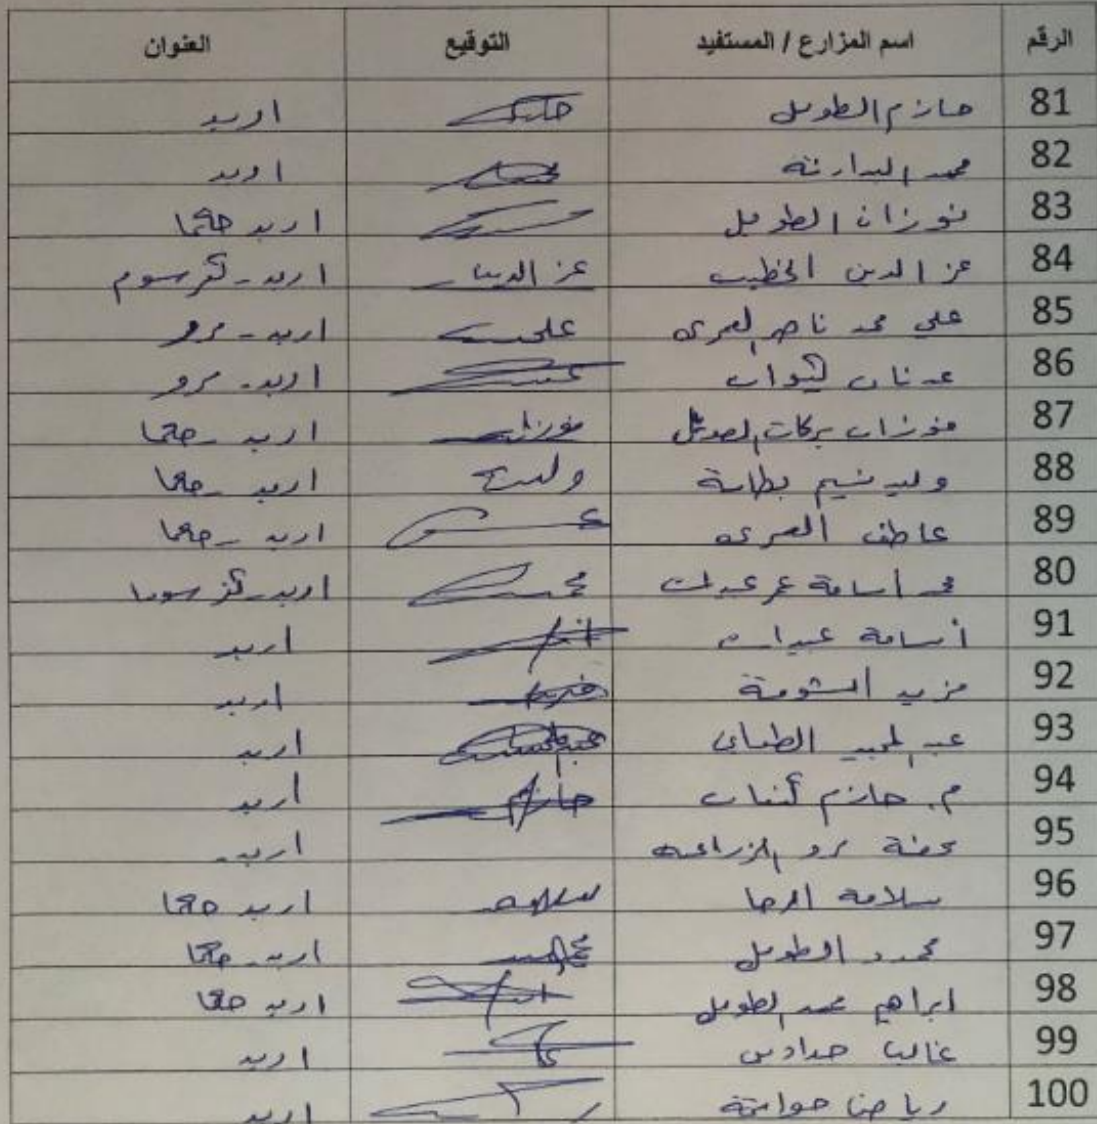 الرقم اسم المزارع / المستفيد التوقيع العنوان
81 حازم الطويل اربد
82 محمد البدارنة اربد
83 فوزان الطويل اربد حكما
84 عز الدين الخطيب عز الدين اربد - كفرسوم
85 علي محمد ناصر العمري علي اربد - مرو
86 عدنان اربد - مرو
87 فوزان بركات الطويل فوزان اربد - حكما
88 وليد نسيم بطاينة وليد اربد - حكما
89 عاطف العمري اربد - حكما
80 محمد أسامة عمر عبيدات اربد - كفرسوم
91 أسامة عبيدات اربد
92 مزيد الشومة اربد
93 عبد المجيد اربد
94 م. حازم كنعان حازم اربد
95 محطة مرو الزراعية اربد
96 سلامة الرجا سلامه اربد حكما
97 محمود الطويل اربد - حكما
98 ابراهيم محمد الطويل اربد حكما
99 غالب حدادين اربد
100 رياض حواتمة اربد